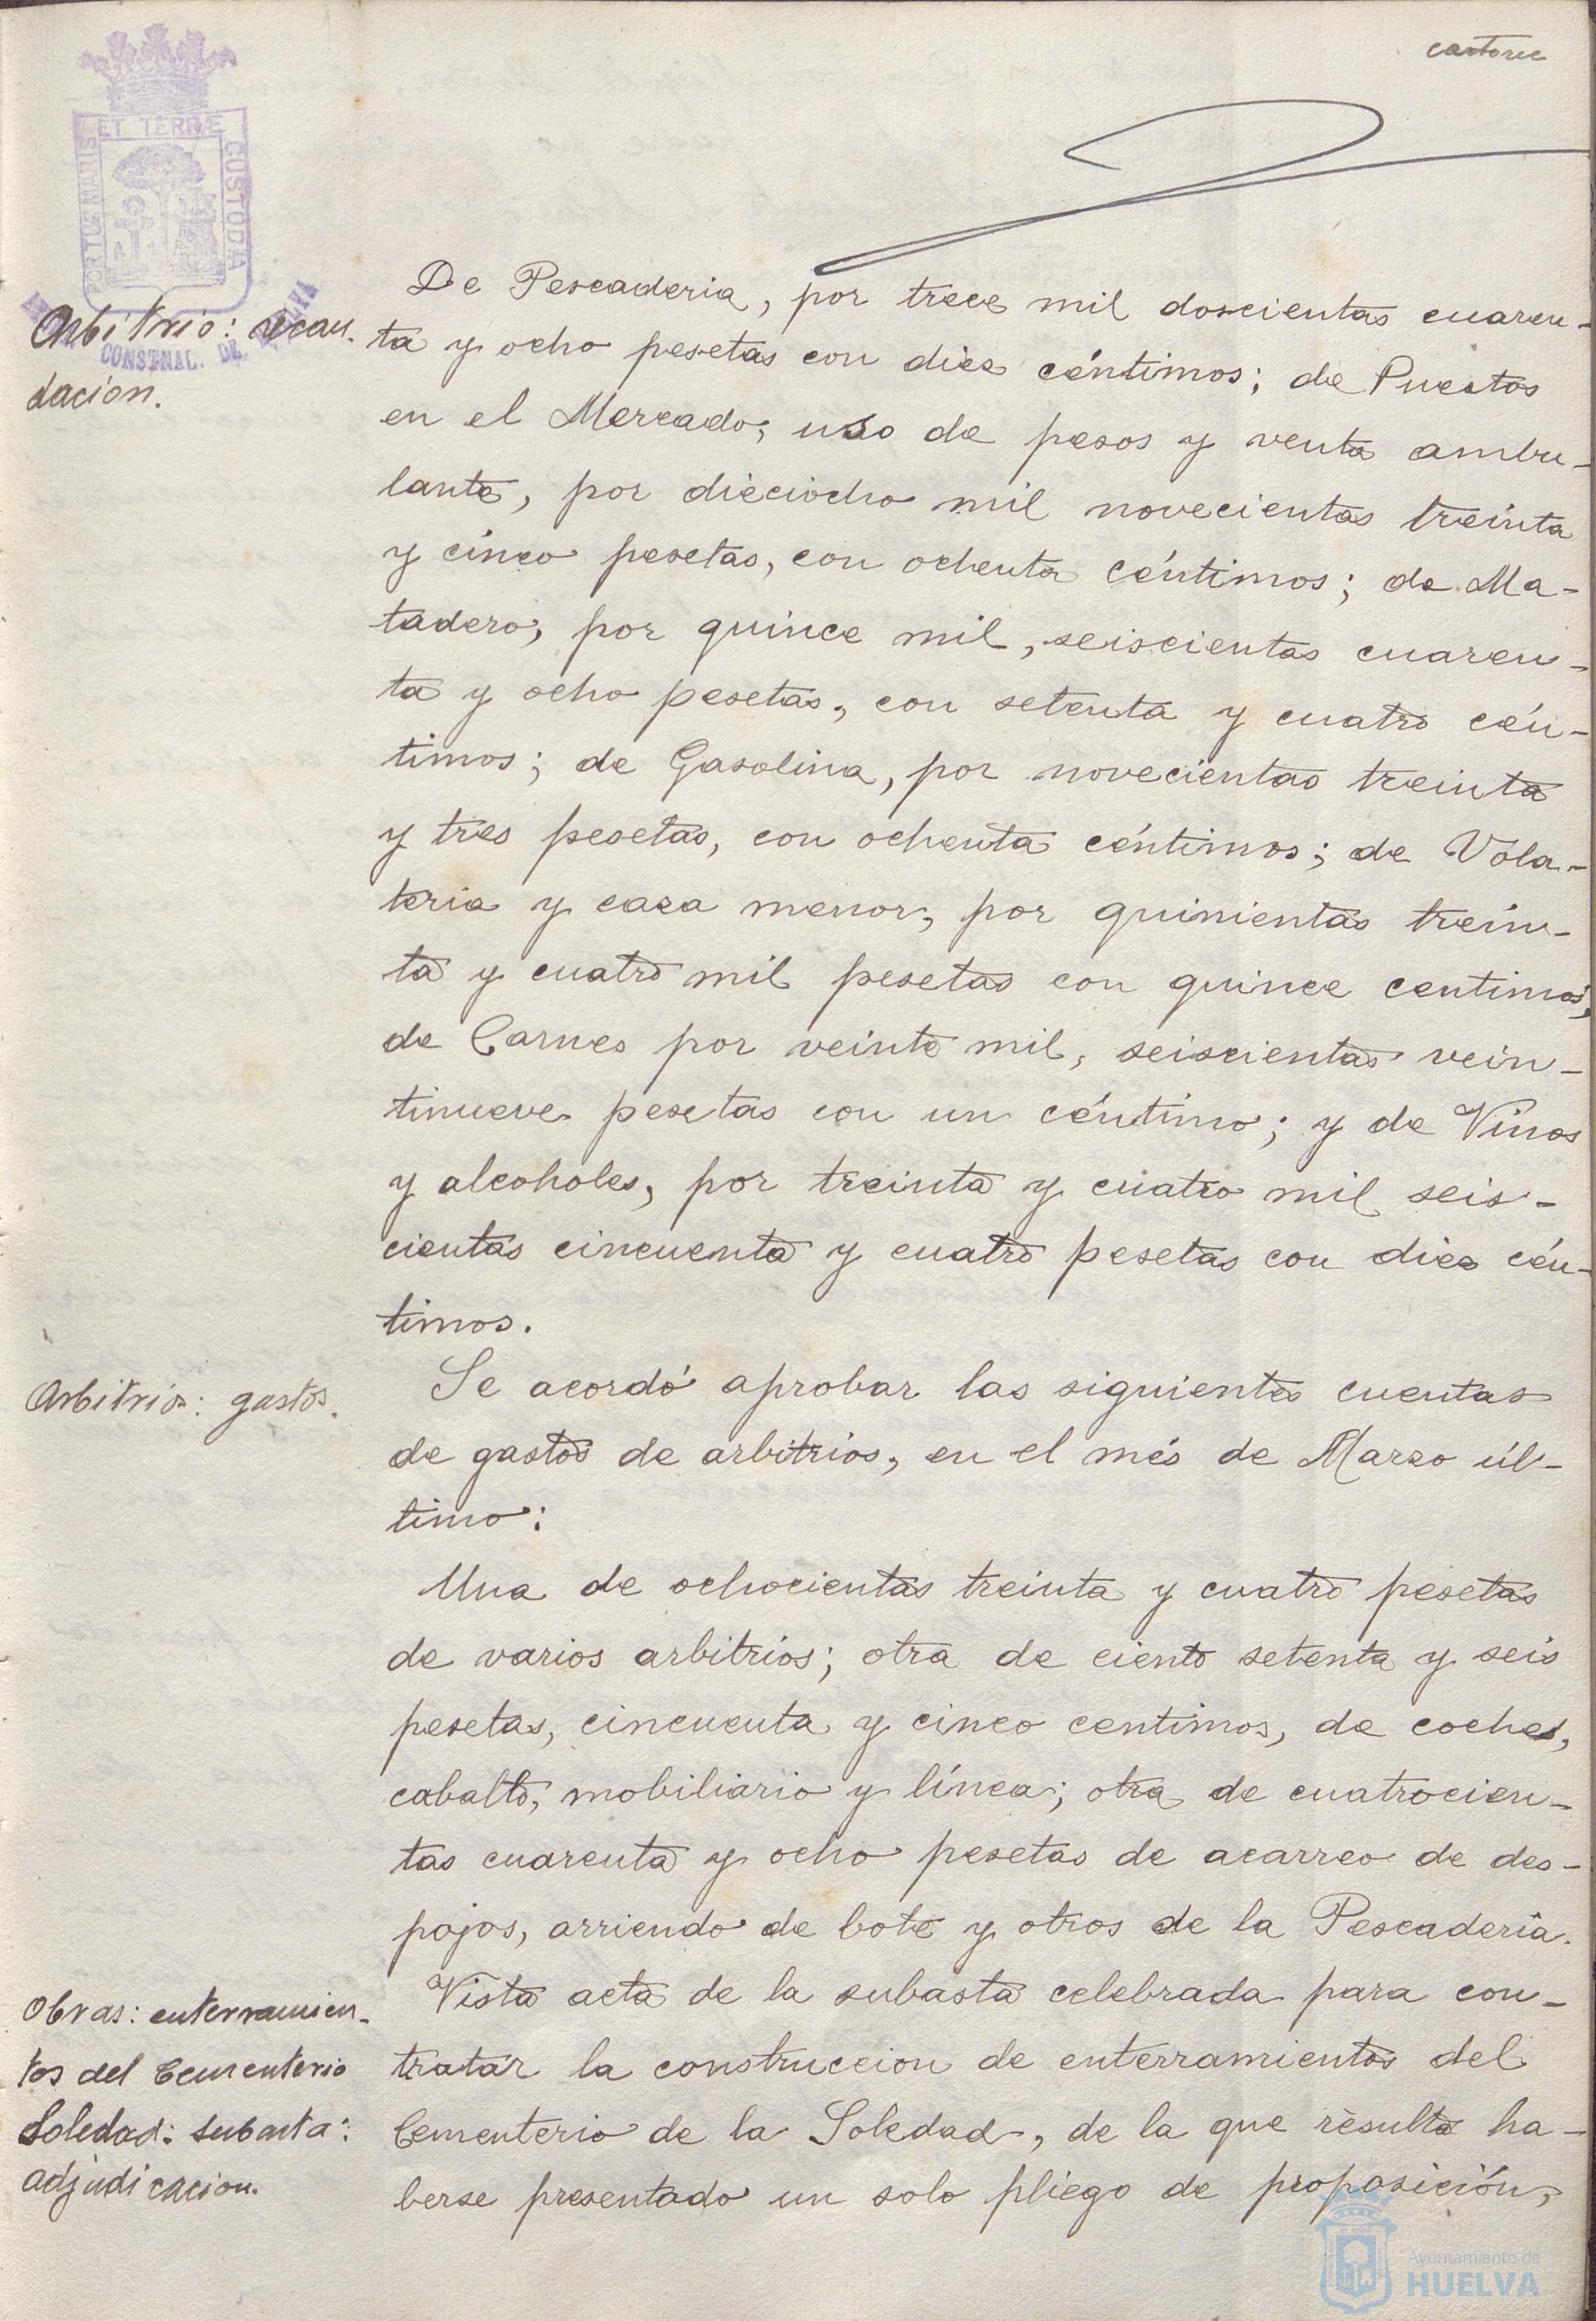 catorce
PORTUS MARIS ET TERRÆ CUSTODIA
CONSTNAL. DE
Arbitrio: recau-
dacion.
De Pescaderia, por trece mil doscientas cuaren-
ta y ocho pesetas con diez céntimos; de Puestos
en el Mercado, uso de pesos y venta ambu-
lante, por dieciocho mil novecientas treinta
y cinco pesetas, con ochenta céntimos; de Ma-
tadero, por quince mil, seiscientas cuaren-
ta y ocho pesetas, con setenta y cuatro cén-
timos; de Gasolina, por novecientas treinta
y tres pesetas, con ochenta céntimos; de Vola-
teria y caza menor, por quinientas trein-
ta y cuatro mil pesetas con quince centimos,
de Carnes por veinte mil, seiscientas vein-
tinueve pesetas con un céntimo; y de Vinos
y alcoholes, por treinta y cuatro mil seis-
cientas cincuenta y cuatro pesetas con diez cén-
timos.
Arbitrios: gastos.
Se acordó aprobar las siguientes cuentas
de gastos de arbitrios, en el més de Marzo úl-
timo:
Una de ochocientas treinta y cuatro pesetas
de varios arbitrios; otra de ciento setenta y seis
pesetas, cincuenta y cinco centimos, de coches,
caballo, mobiliario y línea; otra de cuatrocien-
tas cuarenta y ocho pesetas de acarreo de des-
pojos, arriendo de bote y otros de la Pescadería.
Obras: enterramien-
tos del Cementerio
Soledad: subasta:
adjudicacion.
Vista acta de la subasta celebrada para con-
tratar la construccion de enterramientos del
Cementerio de la Soledad, de la que resulta ha-
berse presentado un solo pliego de proposición,
Ayuntamiento de
HUELVA